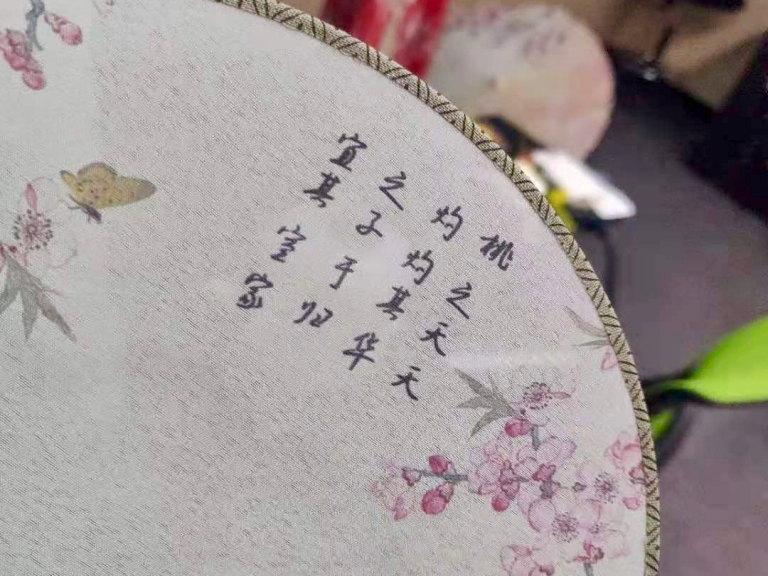 桃之夭夭
灼灼其华
之子于归
宜其室家